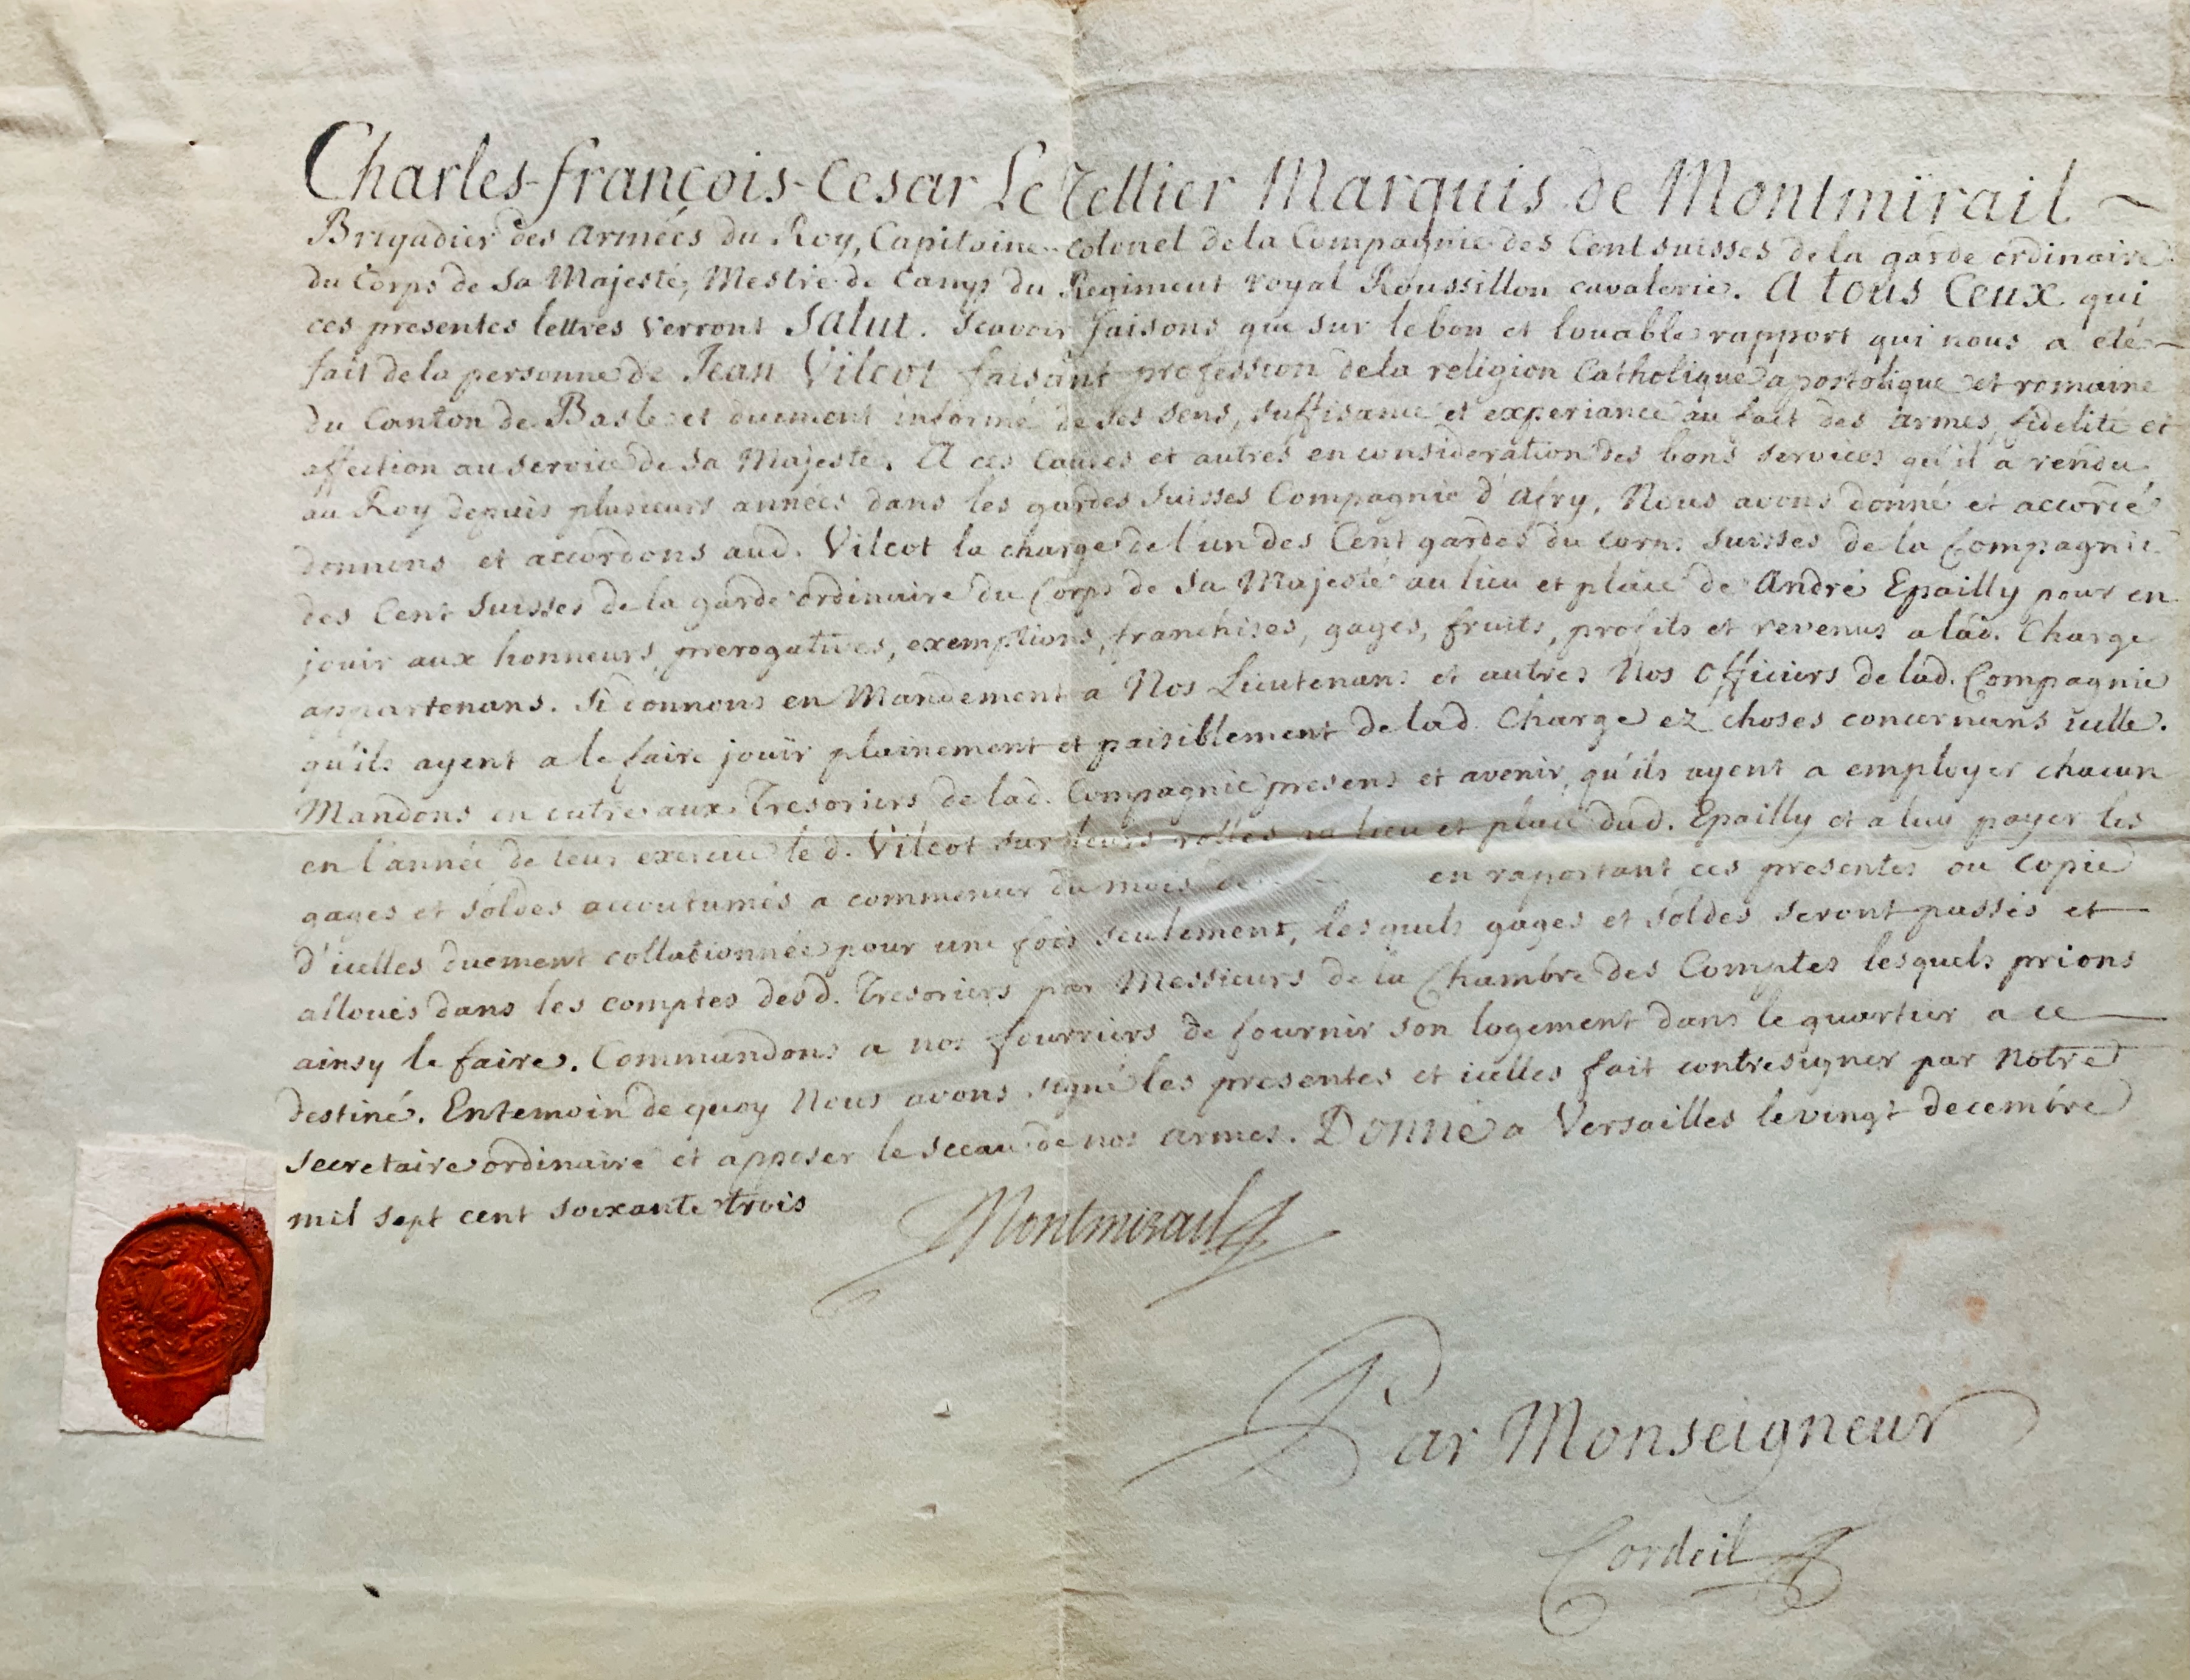 Charles-françois-Cesar Le Tellier Marquis de Montmirail
Brigadier des armées du Roy, Capitaine-colonel de la Compagnie des Cent suisses de la garde ordinaire
du Corps de Sa Majesté, Mestre de Camp du Regiment royal Roussillon cavalerie. A tous Ceux qui
ces presentes lettres Verront Salut. Scavoir faisons que sur le bon et louable rapport qui nous a eté
fait de la personne de Jean Vilcot faisant profession de la religion Catholique apostolique et romaine
du Canton de Basle et duement informé de ses sens, suffisance et experiance au fait des armes, fidelité et
affection au service de Sa Majesté. A ces Causes et autres en consideration des bons services qu'il a rendu
au Roy depuis plusieurs années dans les gardes Suisses Compagnie d'Afry, Nous avons donné et accordé
donnons et accordons aud. Vilcot la charge de l'un des Cent gardes du corps suisses de la Compagnie
des Cent Suisses de la garde ordinaire du Corps de Sa Majesté au lieu et place de André Epailly pour en
jouir aux honneurs, prerogatives, exemptions, franchises, gages, fruits, profits et revenus a lad. Charge
appartenans. Si donnons en Mandement a Nos Lieutenans et autres Nos Officiers de lad. Compagnie
qu'ils ayent a le faire jouir plainement et paisiblement de lad. Charge ez choses concernans icelle.
Mandons en outre aux Tresoriers de lad. Compagnie presens et avenir, qu'ils ayent a employer chacun
en l'année de leur exercice led. Vilcot sur leurs rolles au lieu et place dud. Epailly et a luy payer les
gages et soldes accoutumés a commencer du mois de en raportant ces presentes ou Copie
d'icelles duement collationnée pour une fois seulement, lesquels gages et soldes seront passés et
alloués dans les comptes desd. Tresoriers par Messieurs de la Chambre des Comptes lesquels prions
ainsy le faire. Commandons a nos fourriers de fournir son logement dans le quartier a ce
destiné. En temoin de quoy Nous avons signé les presentes et icelles fait contresigner par Notre
Secretaire ordinaire et apposer le sceau de nos armes. Donné a Versailles le vingt decembre
mil sept cent soixante trois
Montmirail
Par Monseigneur
Cordeil